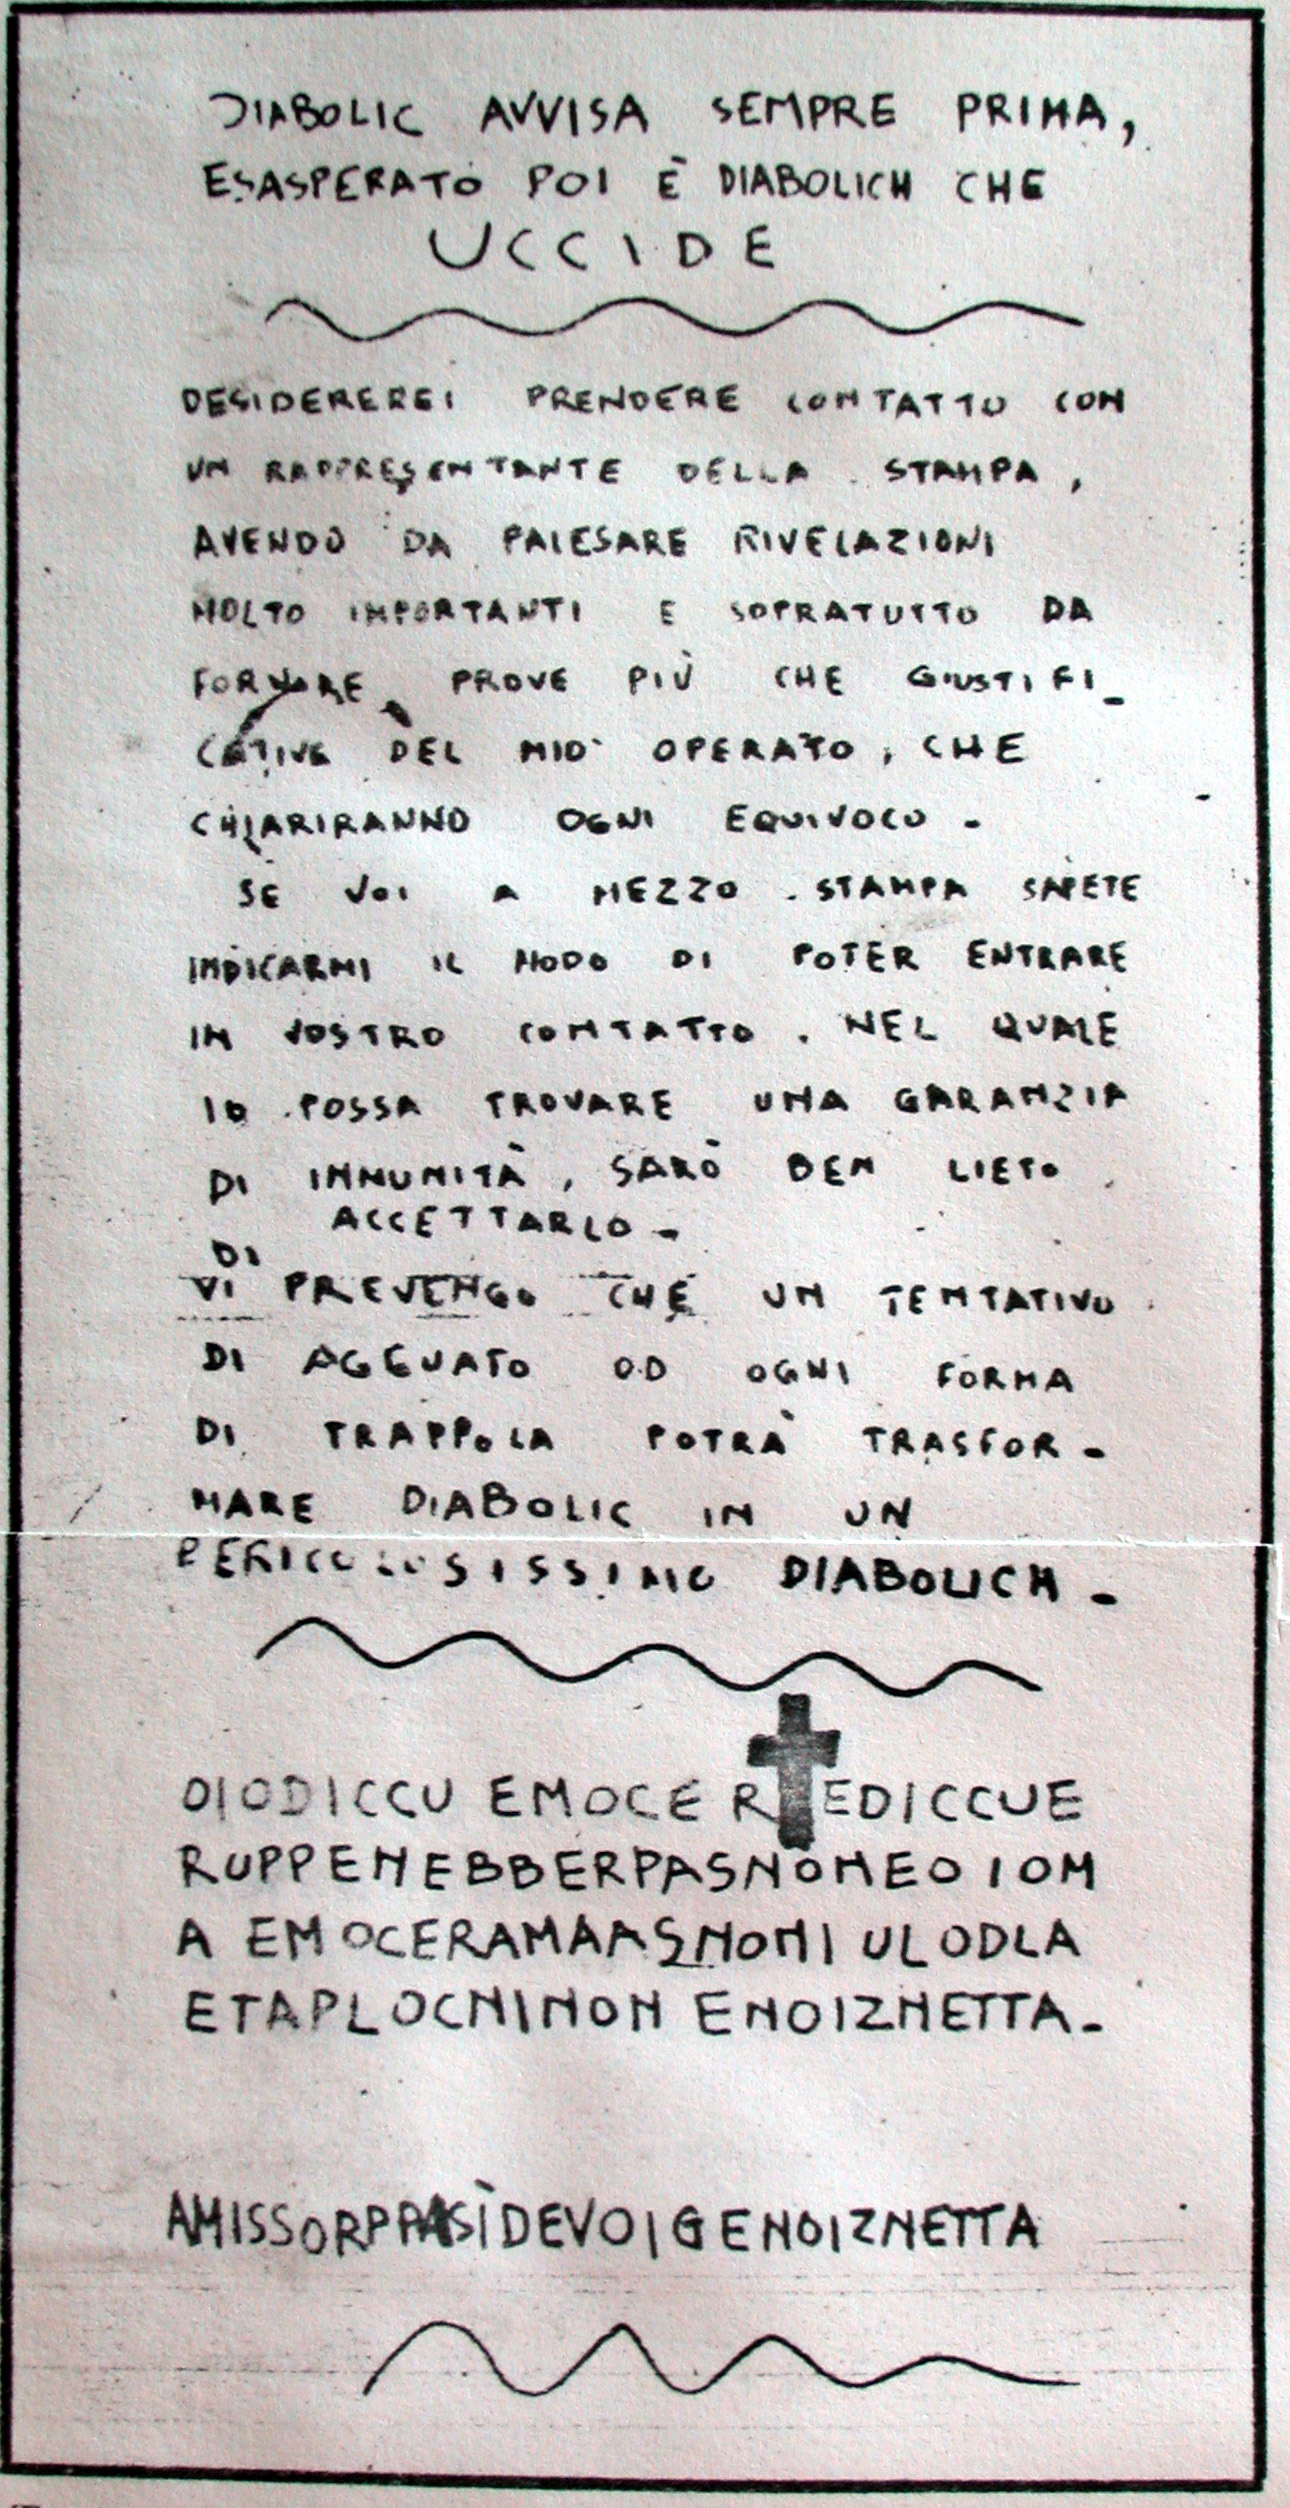 DIABOLIC AVVISA SEMPRE PRIMA,
ESASPERATO POI È DIABOLICH CHE
UCCIDE
DESIDEREREI PRENDERE CONTATTO CON
UN RAPPRESENTANTE DELLA STAMPA,
AVENDO DA PALESARE RIVELAZIONI
MOLTO IMPORTANTI E SOPRATUTTO DA
FORNIRE PROVE PIÙ CHE GIUSTIFI-
CATIVE DEL MIO OPERATO, CHE
CHIARIRANNO OGNI EQUIVOCO -
SE VOI A MEZZO STAMPA SAPETE
INDICARMI IL MODO DI POTER ENTRARE
IN VOSTRO CONTATTO. NEL QUALE
IO POSSA TROVARE UNA GARANZIA
DI IMMUNITÀ, SARÒ BEN LIETO
DI ACCETTARLO -
VI PREVENGO CHE UN TENTATIVO
DI AGGUATO OD OGNI FORMA
DI TRAPPOLA POTRÀ TRASFOR-
MARE DIABOLIC IN UN
PERICOLOSISSIMO DIABOLICH -
OIODICCU EMOCE R EDICCUE
RUPPENEBBERPASNONEOIOM
A EMOCERAMAASNONI ULODLA
ETAPLOCNINON ENOIZNETTA -
AMISSORPPASÌDEVOIGENOIZNETTA